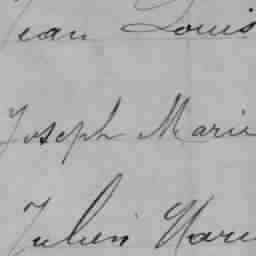 Jean Louis
Joseph Marie
Julien Marie